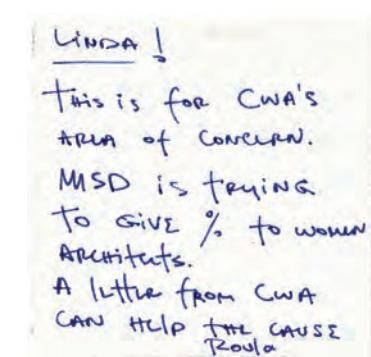 LINDA !
THIS is foR CWA'S
AREA of CONCERN.
MSD is tRYiNG
to GiVE % to women
ARCHitects.
A lEttER fRom CWA
CAN HElp tHE CAUSE
Roula